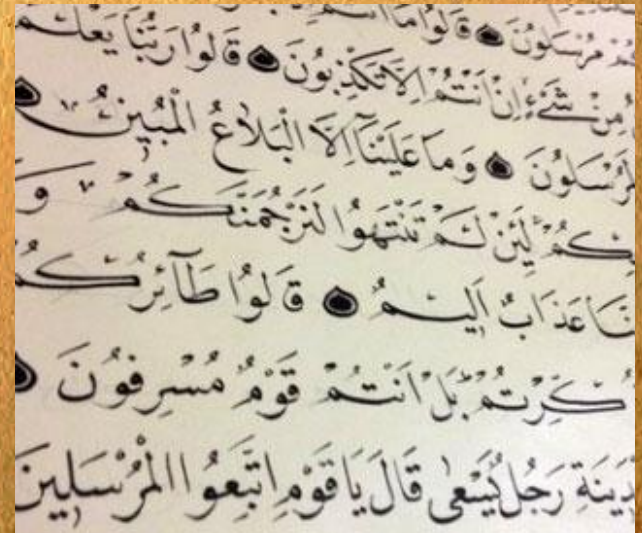 مُرْسَلُونَ قَالُوا مَا اَنْتُمْ
مِنْ شَىْءٍ اِنْ اَنْتُمْ اِلَّا تَكْذِبُونَ قَالُوا رَبُّنَا يَعْلَمُ
لَمُرْسَلُونَ وَمَا عَلَيْنَا اِلَّا الْبَلَاغُ الْمُبِينُ
بِكُمْ لَئِنْ لَمْ تَنْتَهُوا لَنَرْجُمَنَّكُمْ وَ
نَّا عَذَابٌ اَلِيمٌ قَالُوا طَآئِرُكُمْ
ذُكِّرْتُمْ بَلْ اَنْتُمْ قَوْمٌ مُسْرِفُونَ
دِينَةِ رَجُلٌ يَسْعٰى قَالَ يَا قَوْمِ اتَّبِعُوا الْمُرْسَلِينَ